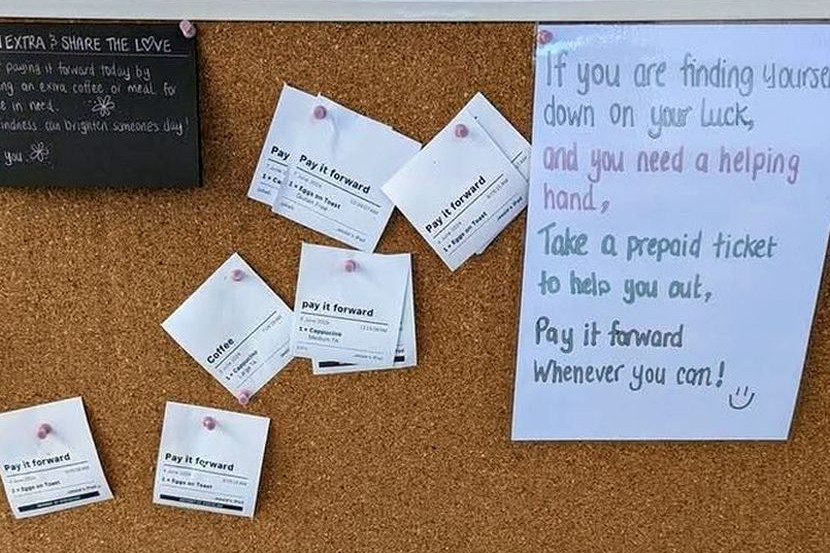 EXTRA & SHARE THE LOVE
paying it forward today by
an extra coffee or meal for
in need.
kindness can brighten someone's day!
you
Pay
Pay it forward
4 June 2024
1 × Eggs on Toast
Gluten Free
Pay it forward
1 × Eggs on Toast
Coffee
1 × Cappucino
Large TA
pay it forward
1 × Cappucino
Medium TA
Pay it forward
1 × Eggs on Toast
Pay it forward
4 June 2024
1 × Eggs on Toast
If you are finding yourse
down on your luck,
and you need a helping
hand,
Take a prepaid ticket
to help you out,
Pay it forward
Whenever you can!